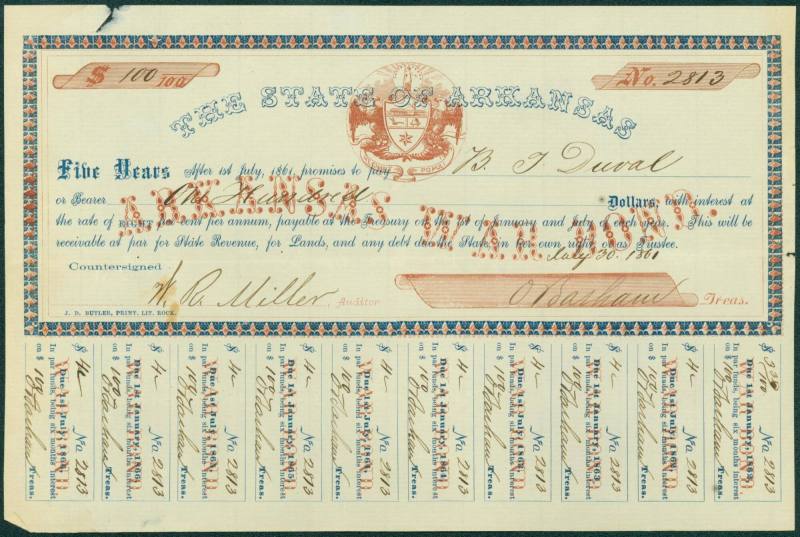 $ 100/100
No. 2813
THE STATE OF ARKANSAS
REGNANT POPULI
Five Years After 1st July, 1861, promises to pay B. T Duval
or Bearer One Hundred Dollars; with interest at
the rate of EIGHT per cent per annum, payable at the Treasury on the 1st of January and July of each year. This will be
receivable at par for State Revenue, for Lands, and any debt due the State, in her own right, or as Trustee.
ARKANSAS WAR BOND.
July 30. 1861
Countersigned
W. R. Miller, Auditor
O Basham Treas.
J. D. BUTLER, PRINT. LIT. ROCK.
$ 4— No 2813
Due 1st July, 1866,
In par funds, being six months interest
on $ 100 O Basham Treas.
$ 4— No 2813
Due 1st January, 1866,
In par funds, being six months interest
on $ 100 O Basham Treas.
$ 4— No 2813
Due 1st July,
In par funds, being six months interest
on $ 100 O Basham Treas.
$ 4— No 2813
Due 1st January, 1865,
In par funds, being six months interest
on $ 100 O Basham Treas.
$ 4— No 2813
Due 1st July, 1864,
In par funds, being six months interest
on $ 100 O Basham Treas.
$ 4— No 2813
Due 1st January, 1864
In par funds, being six months interest
on $ 100 O Basham Treas.
$ 4— No 2813
Due 1st July,
In par funds, being six months interest
on $ 100 O Basham Treas.
$ 4— No 2813
Due 1st January, 1863
In par funds, being six months interest
on $ 100 O Basham Treas.
$ 4— No 2813
Due 1st July, 1862,
In par funds, being six months interest
on $ 100 O Basham Treas.
$ 3 No 2813
Due 1st January,
In par funds, being six months interest
on $ 100 O Basham Treas.